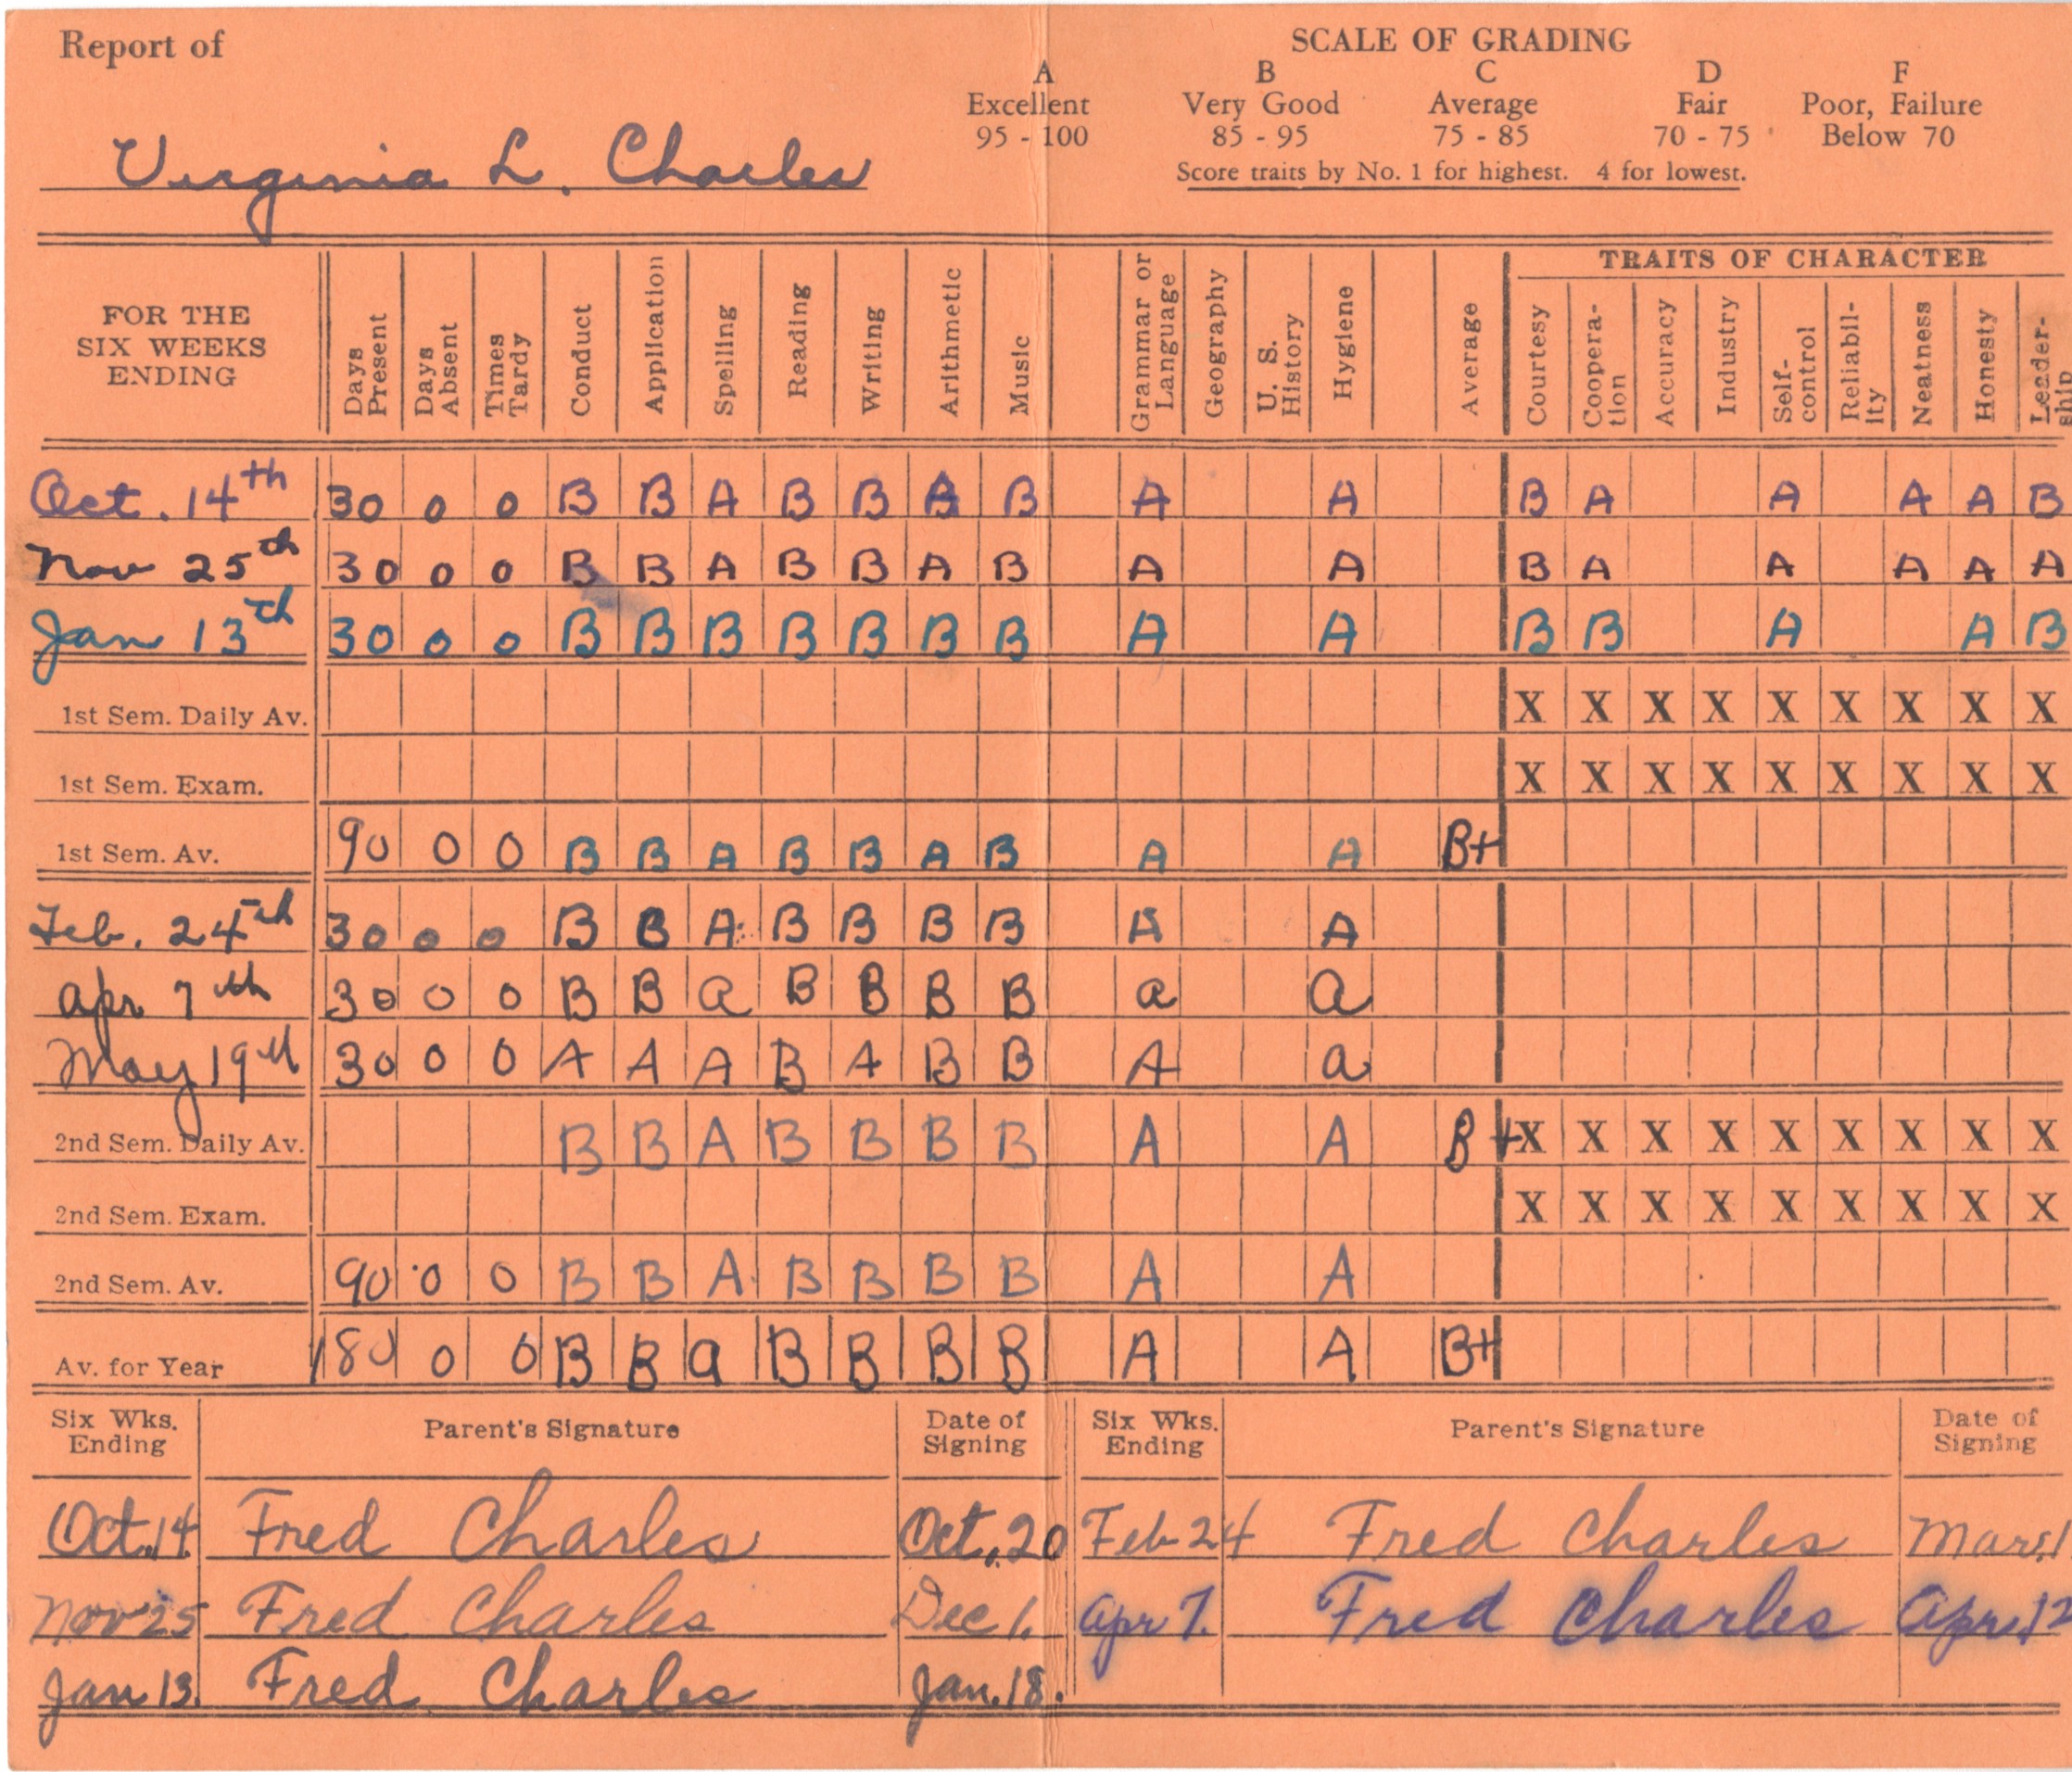 Report of
Virginia L. Charles
SCALE OF GRADING
A B C D F
Excellent Very Good Average Fair Poor, Failure
95 - 100 85 - 95 75 - 85 70 - 75 Below 70
Score traits by No. 1 for highest. 4 for lowest.
FOR THE SIX WEEKS ENDING Days Present Days Absent Times Tardy Conduct Application Spelling Reading Writing Arithmetic Music Grammar or Language Geography U. S. History Hygiene Average TRAITS OF CHARACTER Courtesy Coopera-tion Accuracy Industry Self-control Reliabil-ity Neatness Honesty Leader-ship
Oct. 14th 30 0 0 B B A B B A B A A B A A A A B
Nov 25th 30 0 0 B B A B B A B A A B A A A A A
Jan 13th 30 0 0 B B B B B B B A A B B A A B
1st Sem. Daily Av. X X X X X X X X X
1st Sem. Exam. X X X X X X X X X
1st Sem. Av. 90 0 0 B B A B B A B A A B+
Feb. 24th 30 0 0 B B A B B B B A
Apr 7th 30 0 0 B B a B B B B a a
May 19th 30 0 0 A A A B A B B A a
2nd Sem. Daily Av. B B A B B B B A A B + X X X X X X X X X
2nd Sem. Exam. X X X X X X X X X
2nd Sem. Av. 90 0 0 B B A B B B B A A
Av. for Year 180 0 0 B B a B B B B A A B+
Six Wks. Ending Parent's Signature Date of Signing Six Wks. Ending Parent's Signature Date of Signing
Oct. 14. Fred Charles Oct. 20 Feb 24 Fred Charles Mar. 1
Nov 25 Fred Charles Dec 1. Apr 7. Fred Charles Apr. 12
Jan 13. Fred Charles Jan. 18.